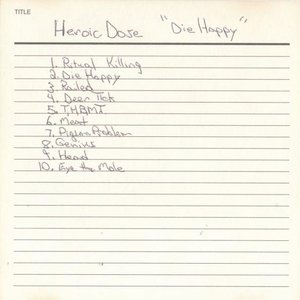 TITLE
Heroic Dose "Die Happy"
1. Ritual Killing
2. Die Happy
3. Railed
4. Deer Tick
5. T.H.B.M.I.
6. Meat
7. Pigeon Problem
8. Genius
9. Heard
10. Eye the Mole